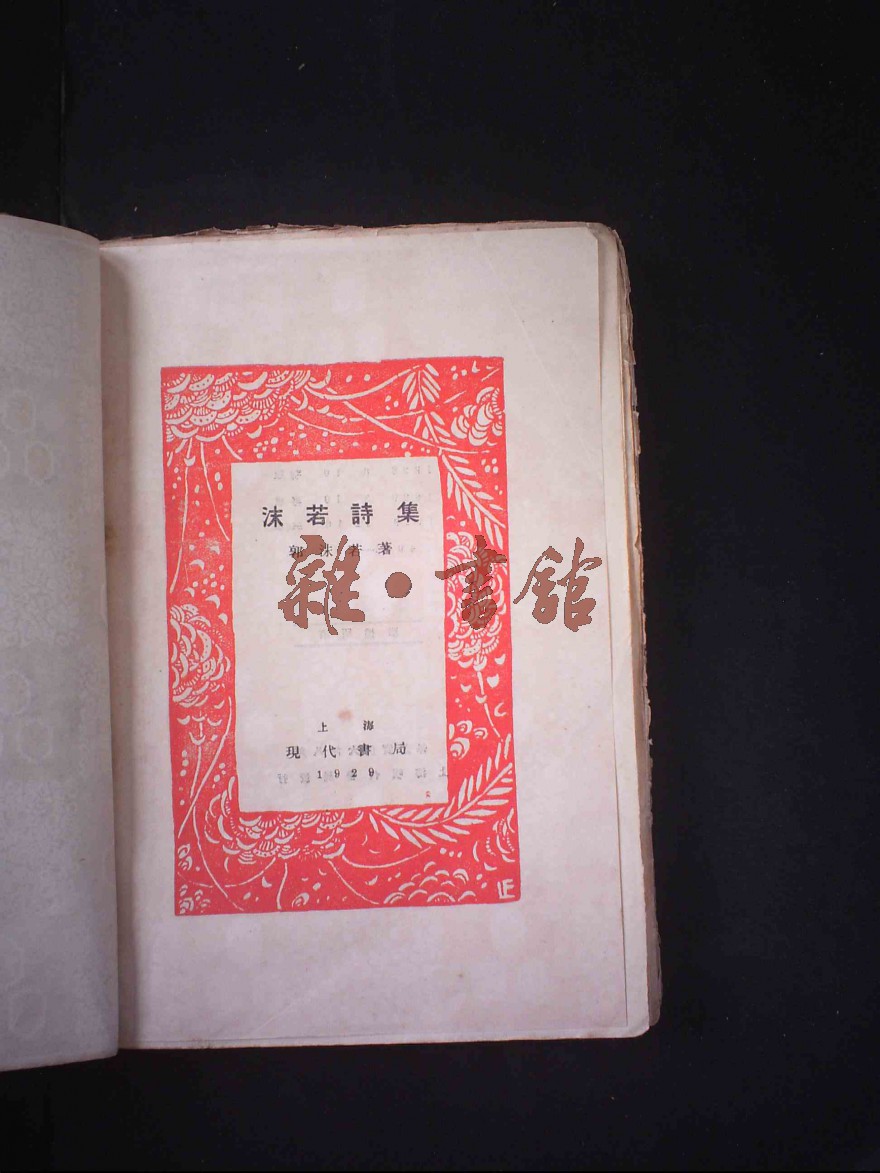 沫若詩集
郭沫若著
雜·書館
上海
現代書局
1929
LE